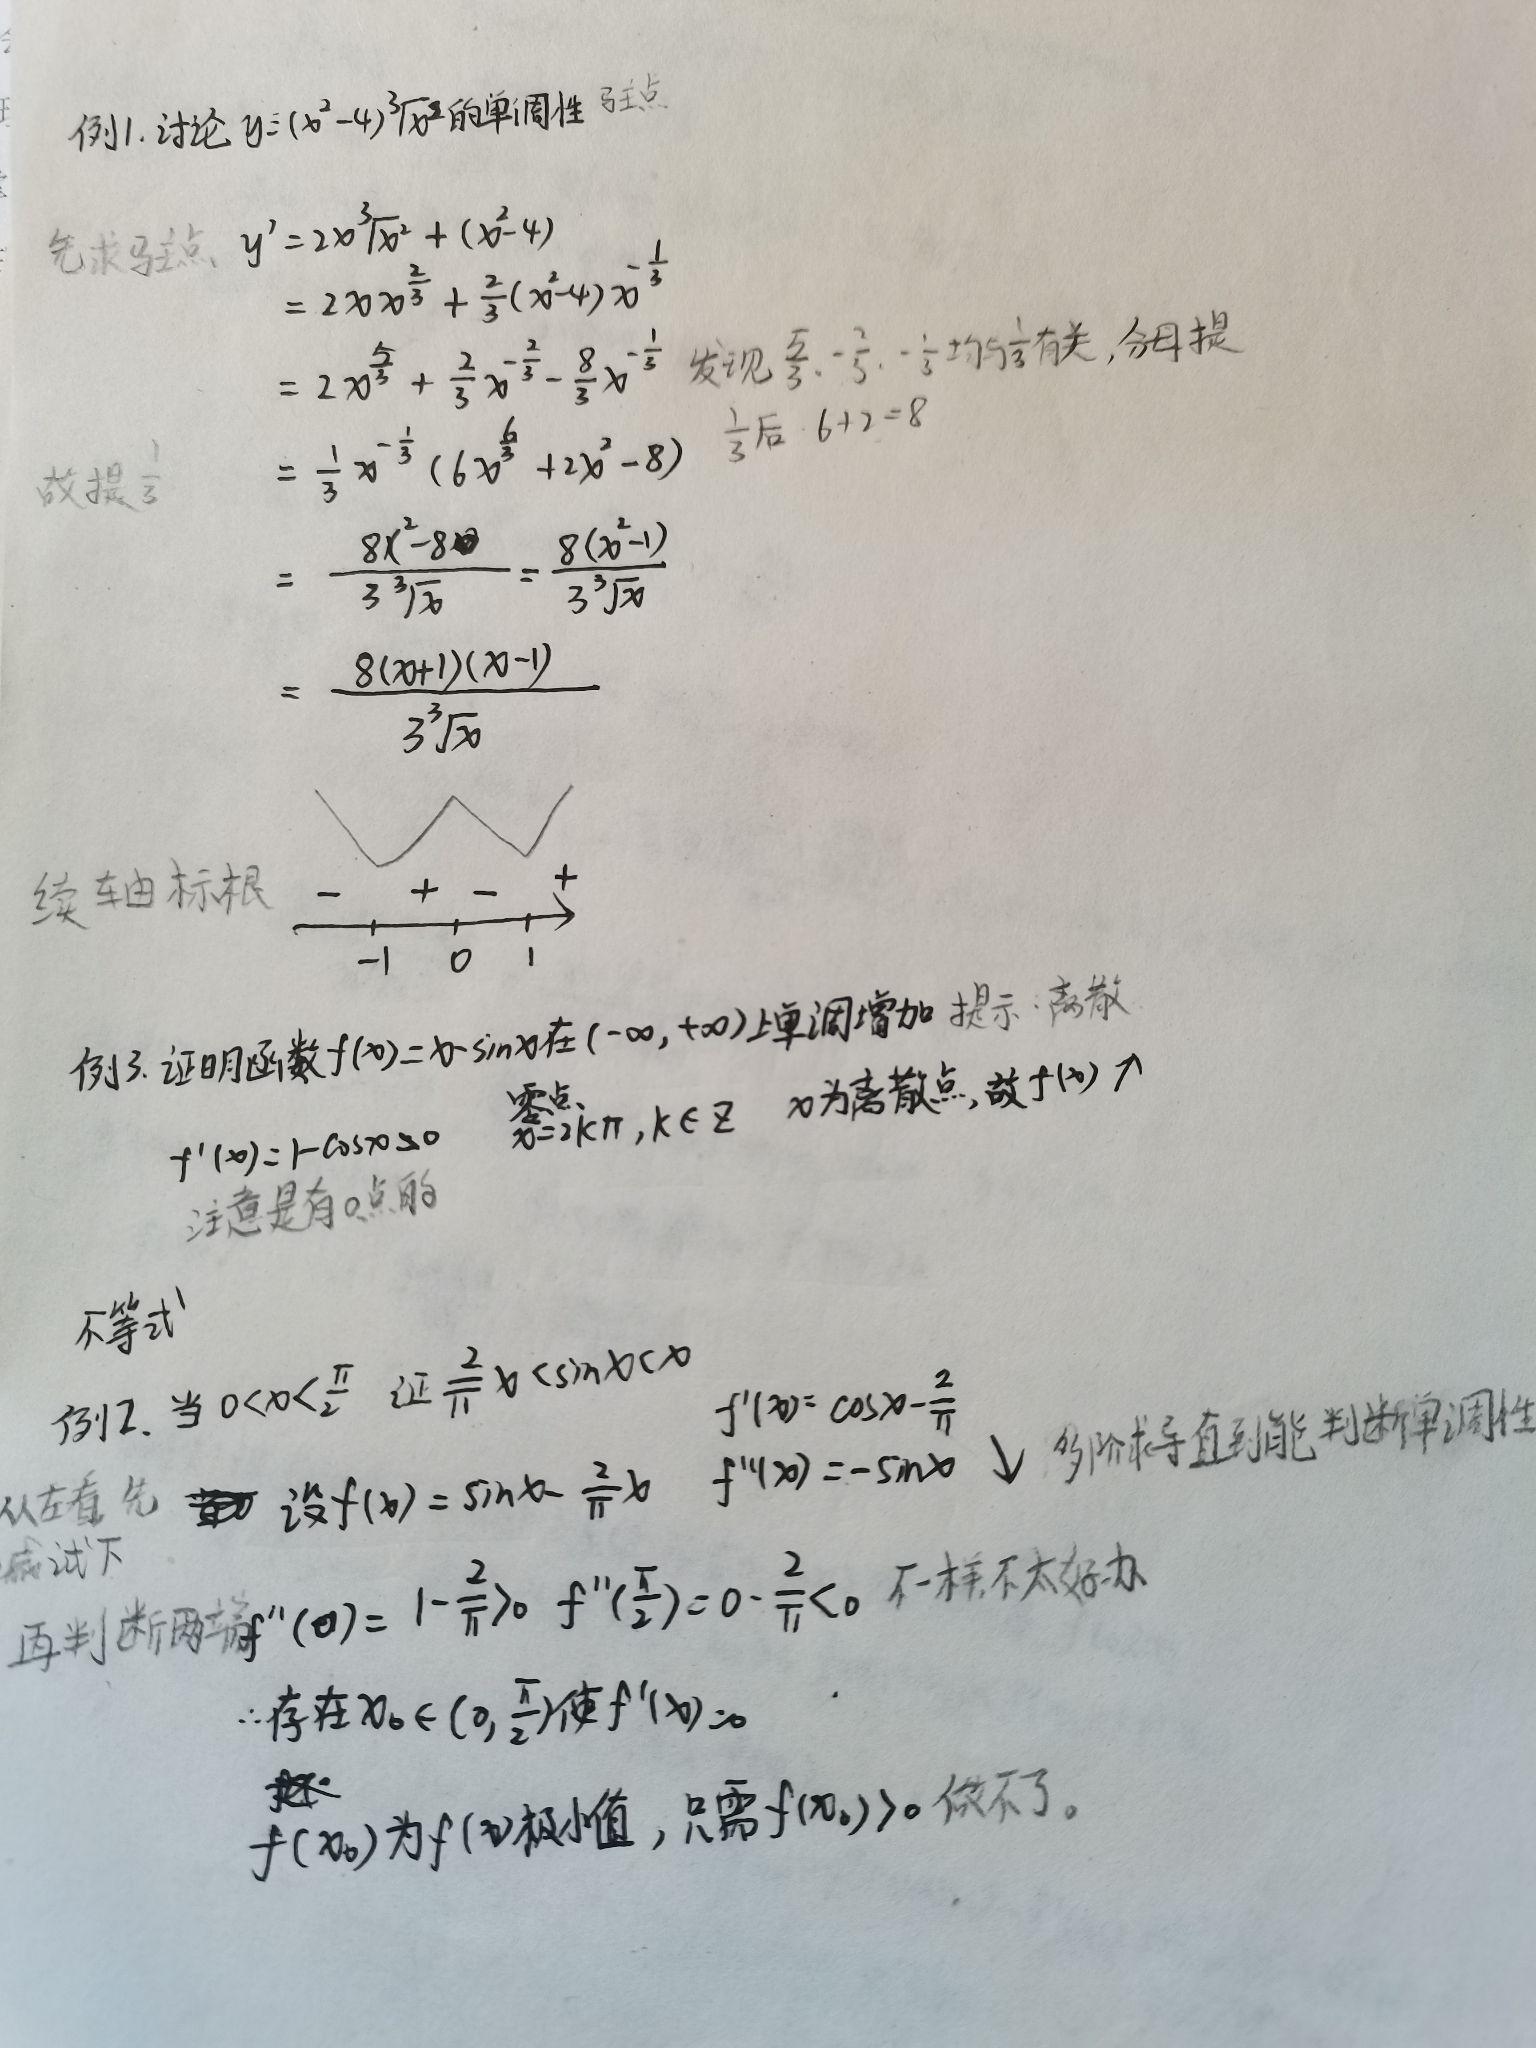 例1. 讨论 y=(x²-4)³√x²的单调性 驻点
先求驻点、 y'=2x³√x²+(x²-4)
=2xx^(2/3)+2/3(x²-4)x^(-1/3)
=2x^(5/3)+2/3x^(-2/3)-8/3x^(-1/3) 发现5/3、-2/3、-1/3均与1/3有关,分母提
1/3后 6+2=8
故提1/3 =1/3x^(-1/3)(6x^(6/3)+2x²-8)
=(8x²-8)/(3³√x)=8(x²-1)/(3³√x)
=8(x+1)(x-1)/(3³√x)
续轴标根 - + - +
-1 0 1
例3. 证明函数f(x)=x-sinx在(-∞,+∞)上单调增加 提示:离散
f'(x)=1-cosx≥0 零点、x=2kπ,k∈Z x为离散点,故f(x)↑
注意是有0点的
不等式
例2. 当0<x<π/2 证2/πx<sinx<x
f'(x)=cosx-2/π
从左看先 设f(x)=sinx-2/πx f''(x)=-sinx ↓ 多阶求导直到能判断单调性
减试下
再判断两端f''(0)=1-2/π>0 f''(π/2)=0-2/π<0 不一样不太好办
∴存在x₀∈(0,π/2)使f'(x)=0
f(x₀)为f(x)极小值,只需f(x₀)>0 做不了。